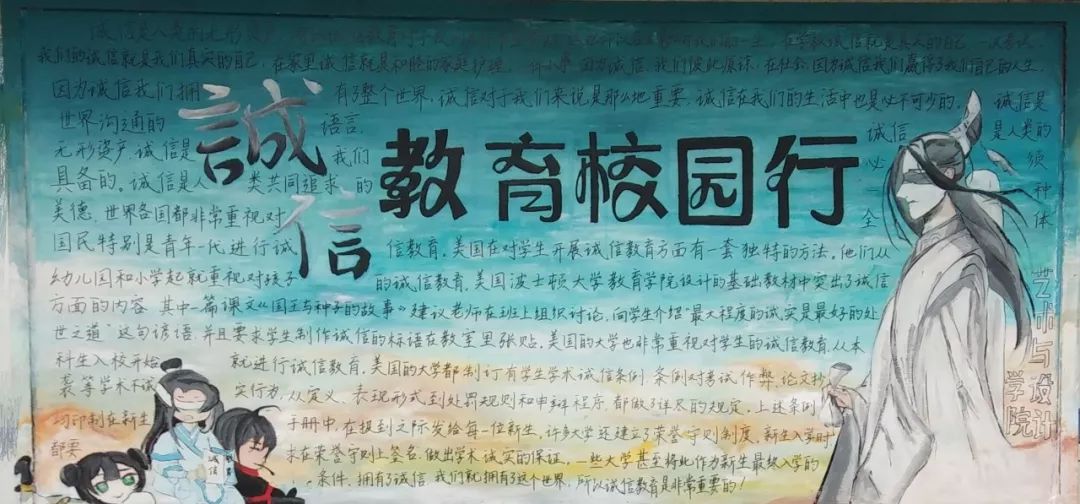 诚信是人类的无形资产
我们的诚信就是我们真实的自己,在家里诚信就是和睦的家庭护理。 因为诚信,我们彼此原谅,在社会,因为诚信我们赢得了我们自己的人生,
因为诚信我们拥有了整个世界,诚信对于我们来说是那么地重要,诚信在我们的生活中也是必不可少的。 诚信是
世界沟通的语言, 诚信是人类的
无形资产,诚信是我们必须
具备的。诚信是人类共同追求的一种
美德,世界各国都非常重视对全体
国民特别是青年一代进行诚信教育,美国在对学生开展诚信教育方面有一套独特的方法。他们从
幼儿园和小学起就重视对孩子的诚信教育,美国波士顿大学教育学院设计的基础教材中突出了诚信
方面的内容 其中一篇课文《国王与种子的故事》建议老师在班上组织讨论,向学生介绍“最大程度的诚实是最好的处
世之道”这句谚语,并且要求学生制作诚信的标语在教室里张贴。美国的大学也非常重视对学生的诚信教育,从本
科生入校开始就进行诚信教育,美国的大学都制订有学生学术诚信条例,条例对考试作弊,论文抄
袭等学术不诚实行为,从定义、表现形式到处罚规则和申辩程序,都做了详尽的规定。上述条例
均印制在新生手册中,在报到之际发给每一位新生,许多大学还建立了荣誉守则制度,新生入学时
都要求在荣誉守则上签名,做出学术诚实的保证,一些大学甚至将此作为新生最终入学的
条件,拥有了诚信,我们就拥有了这个世界,所以诚信教育是非常重要的!
誠信
教育校园行
艺术与设计
学院
诚信